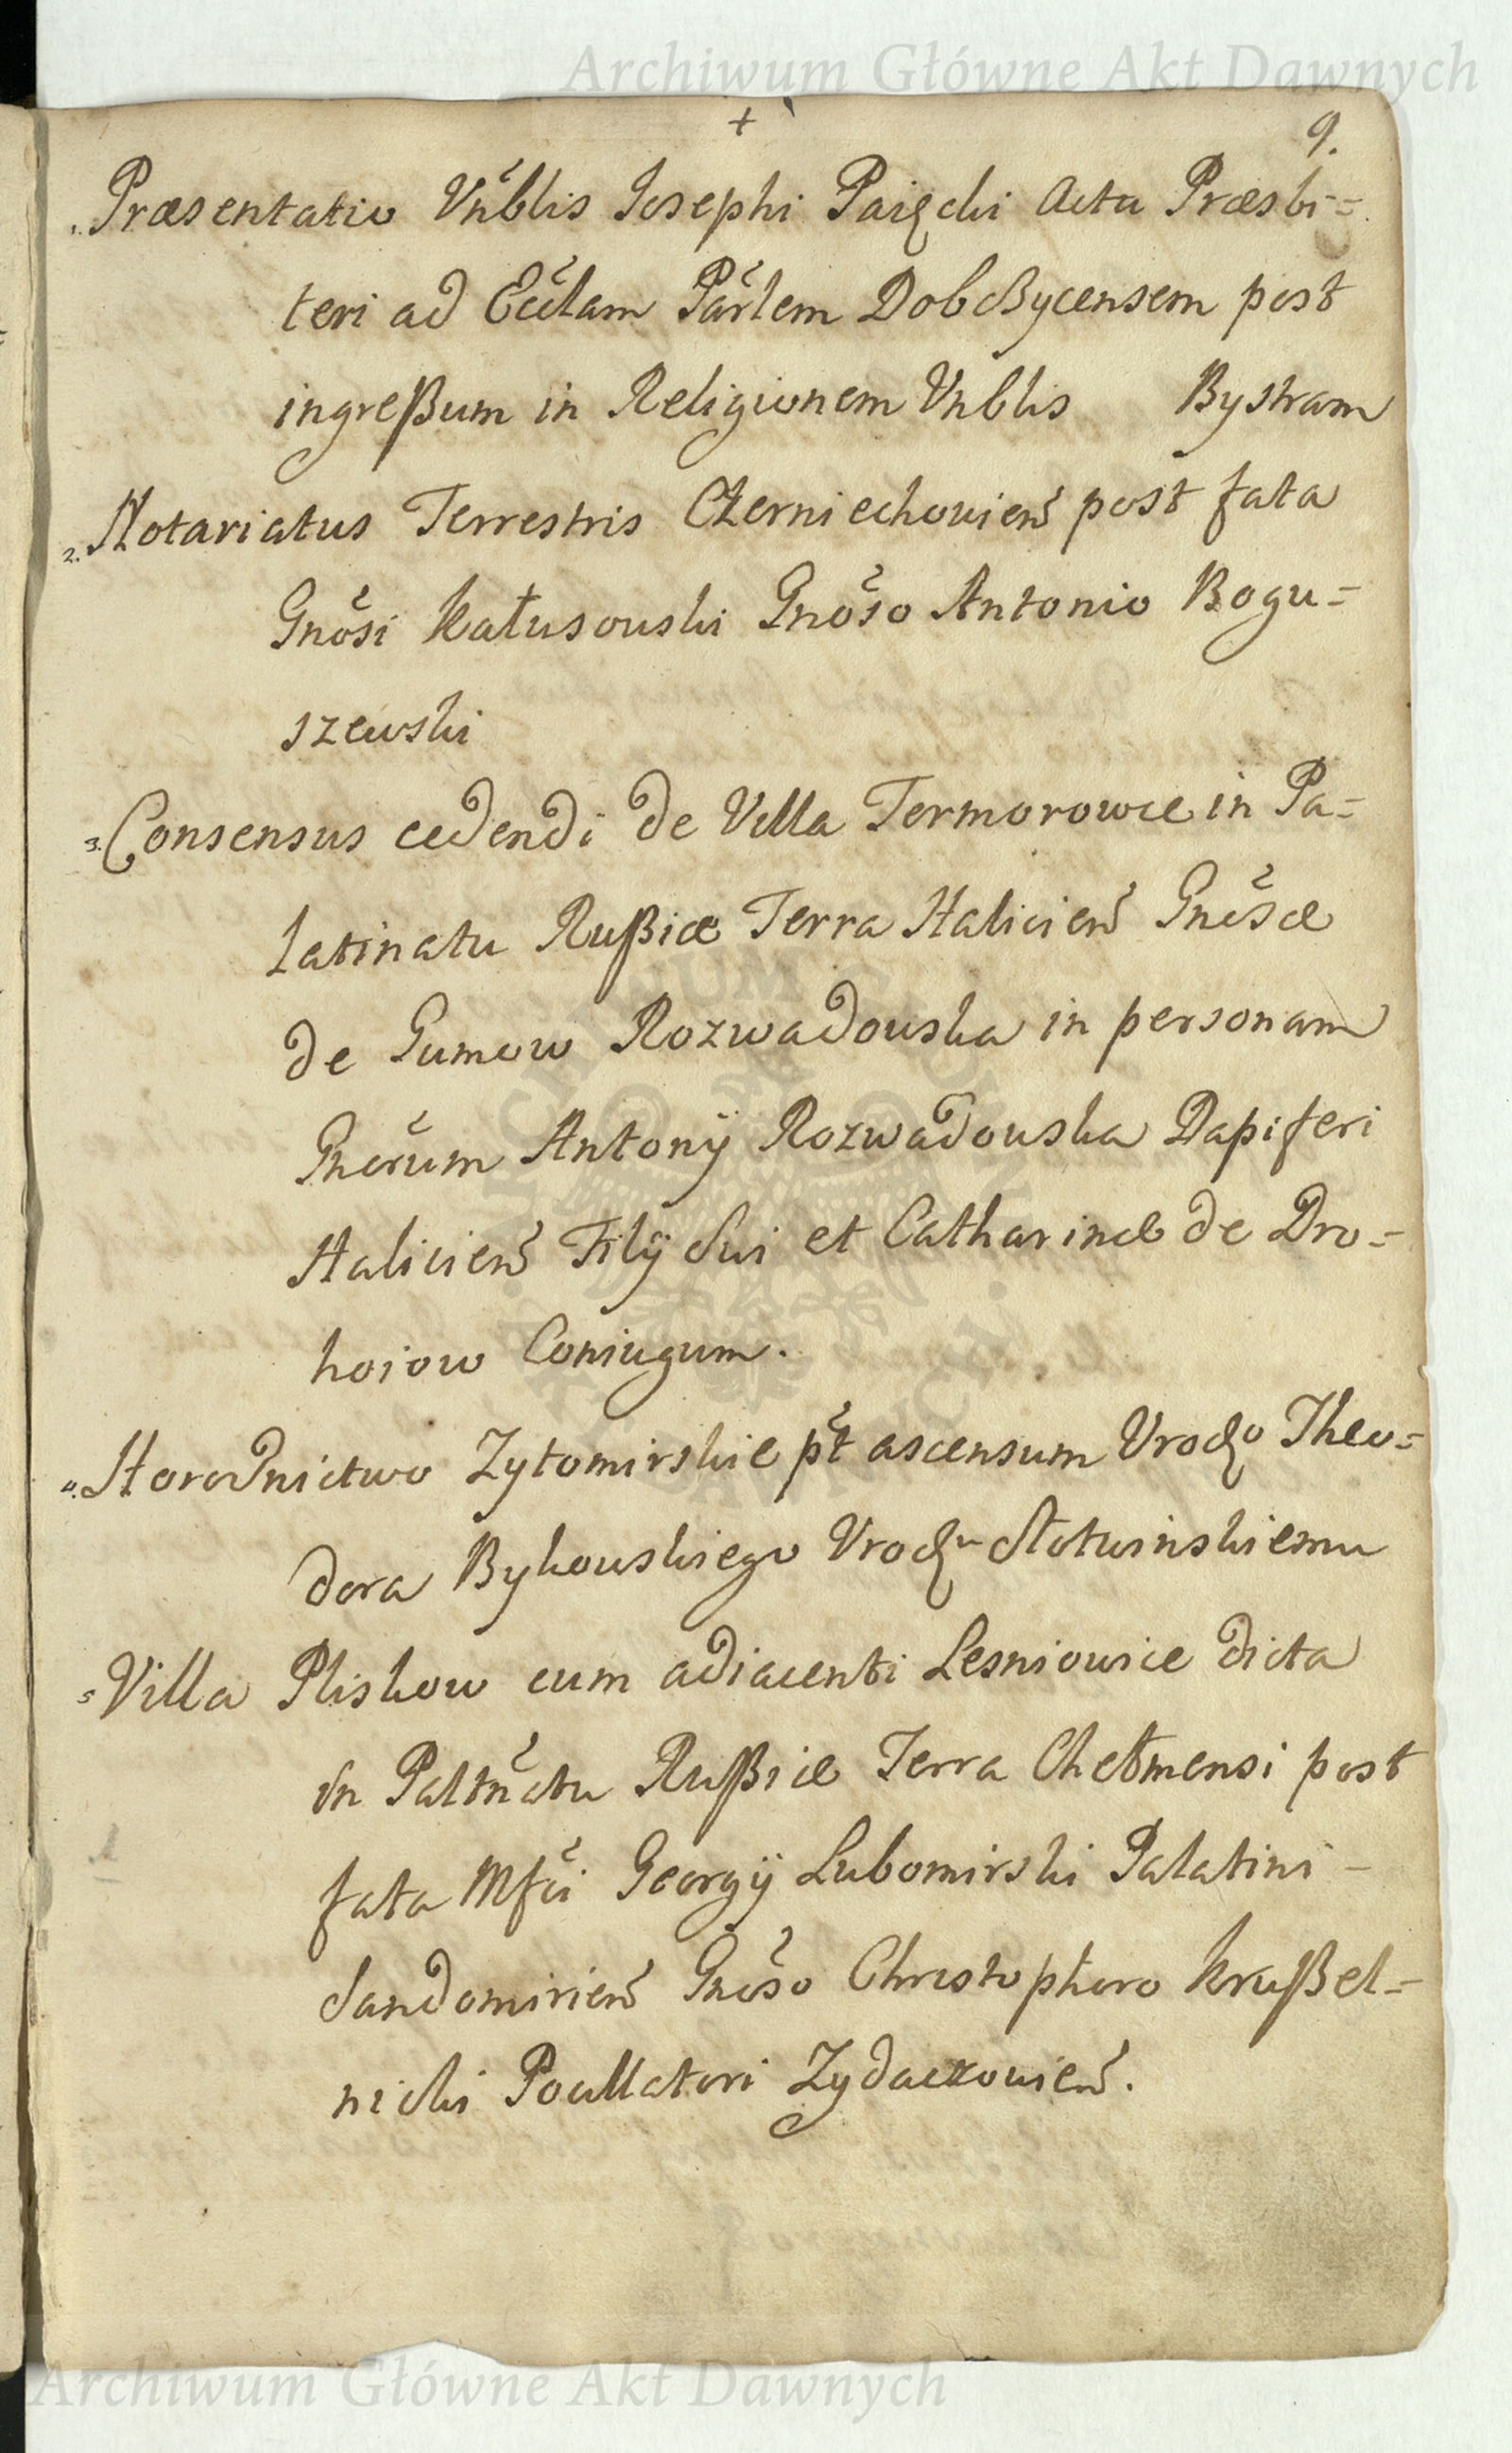 Archiwum Główne Akt Dawnych
+
9.
1. Præsentatio Vnblis Josephi Paięcki Actu Præsbi=
teri ad Ecclam Parlem Dobczycensem post
ingreßum in Religionem Vnblis Bystram
2. Notariatus Terrestris Czerniechovień post fata
Gnosi Kałusouski Gnoso Antonio Bogu=
szewski
3. Consensus cedendi de Villa Termorowce in Pa=
latinatu Rußiæ Terra Halicień Gnosæ
de Gumow Rozwadouska in personam
Gnorum Antonÿ Rozwadouska Dapiferi
Halicień Filÿ Sui et Catharinæ de Dro=
hoiow Coniugum.
4. Horodnictwo Zytomirskie pt ascensum Vrodzo Theo=
dora Bykouskiego Vrodzu Słotwinskiemu
5 Villa Pliskow cum adiacenti Lesniowice dicta
in Paltnatu Rußiæ Terra Chełmensi post
fata Mfci Georgÿ Lubomirski Palatini -
Sandomirień Gnoso Christophoro Krußel=
nicki Pocillatori Zydaczouień.
Archiwum Główne Akt Dawnych